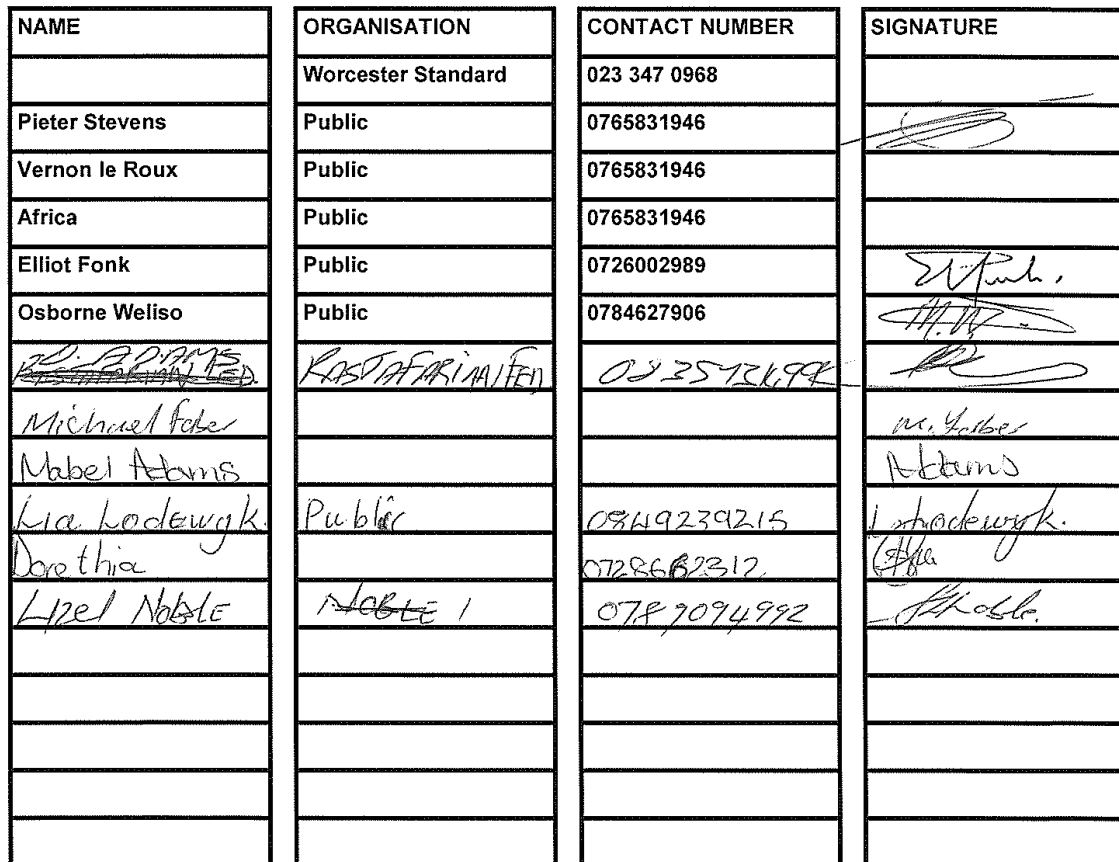 NAME ORGANISATION CONTACT NUMBER SIGNATURE
Worcester Standard 023 347 0968
Pieter Stevens Public 0765831946
Vernon le Roux Public 0765831946
Africa Public 0765831946
Elliot Fonk Public 0726002989
Osborne Weliso Public 0784627906 M.W.
ADAMS RASTAFARIAN FED
Michael Faber M. Faber
Mabel Adams Adams
Lia Lodewyk. Public 0849239215 Lodewyk.
Dorethia
Lizel Noble NOBLE 0789094992